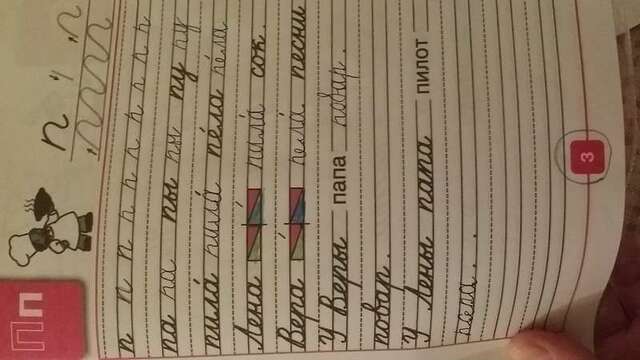 Пп
п ч п
п п п п п п п п п п
па па пы пы пу пу
пила́ пила́ пе́ла пе́ла
Лена пила́ сок.
Вера пела́ песни
У Веры папа повар.
повар.
У Лены папа пилот
3